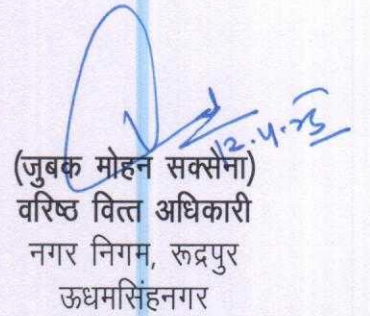 12.4.25
(जुबक मोहन सक्सैना)
वरिष्ठ वित्त अधिकारी
नगर निगम, रूद्रपुर
ऊधमसिंहनगर